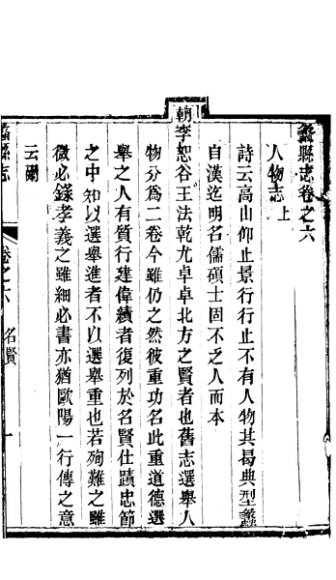 蠡縣志卷之六
人物志 上
詩云高山仰止景行行止不有人物其曷典型蠡
自漢迄明名儒碩士固不乏人而本
朝李恕谷王法乾尤卓卓北方之賢者也舊志選舉人
物分爲二卷今雖仍之然彼重功名此重道德選
舉之人有質行建偉績者復列於名賢仕蹟忠節
之中知以選舉進者不以選舉重也若殉難之雖
微必錄孝義之雖細必書亦猶歐陽一行傳之意
云爾
蠡縣志 卷之六 名賢 一